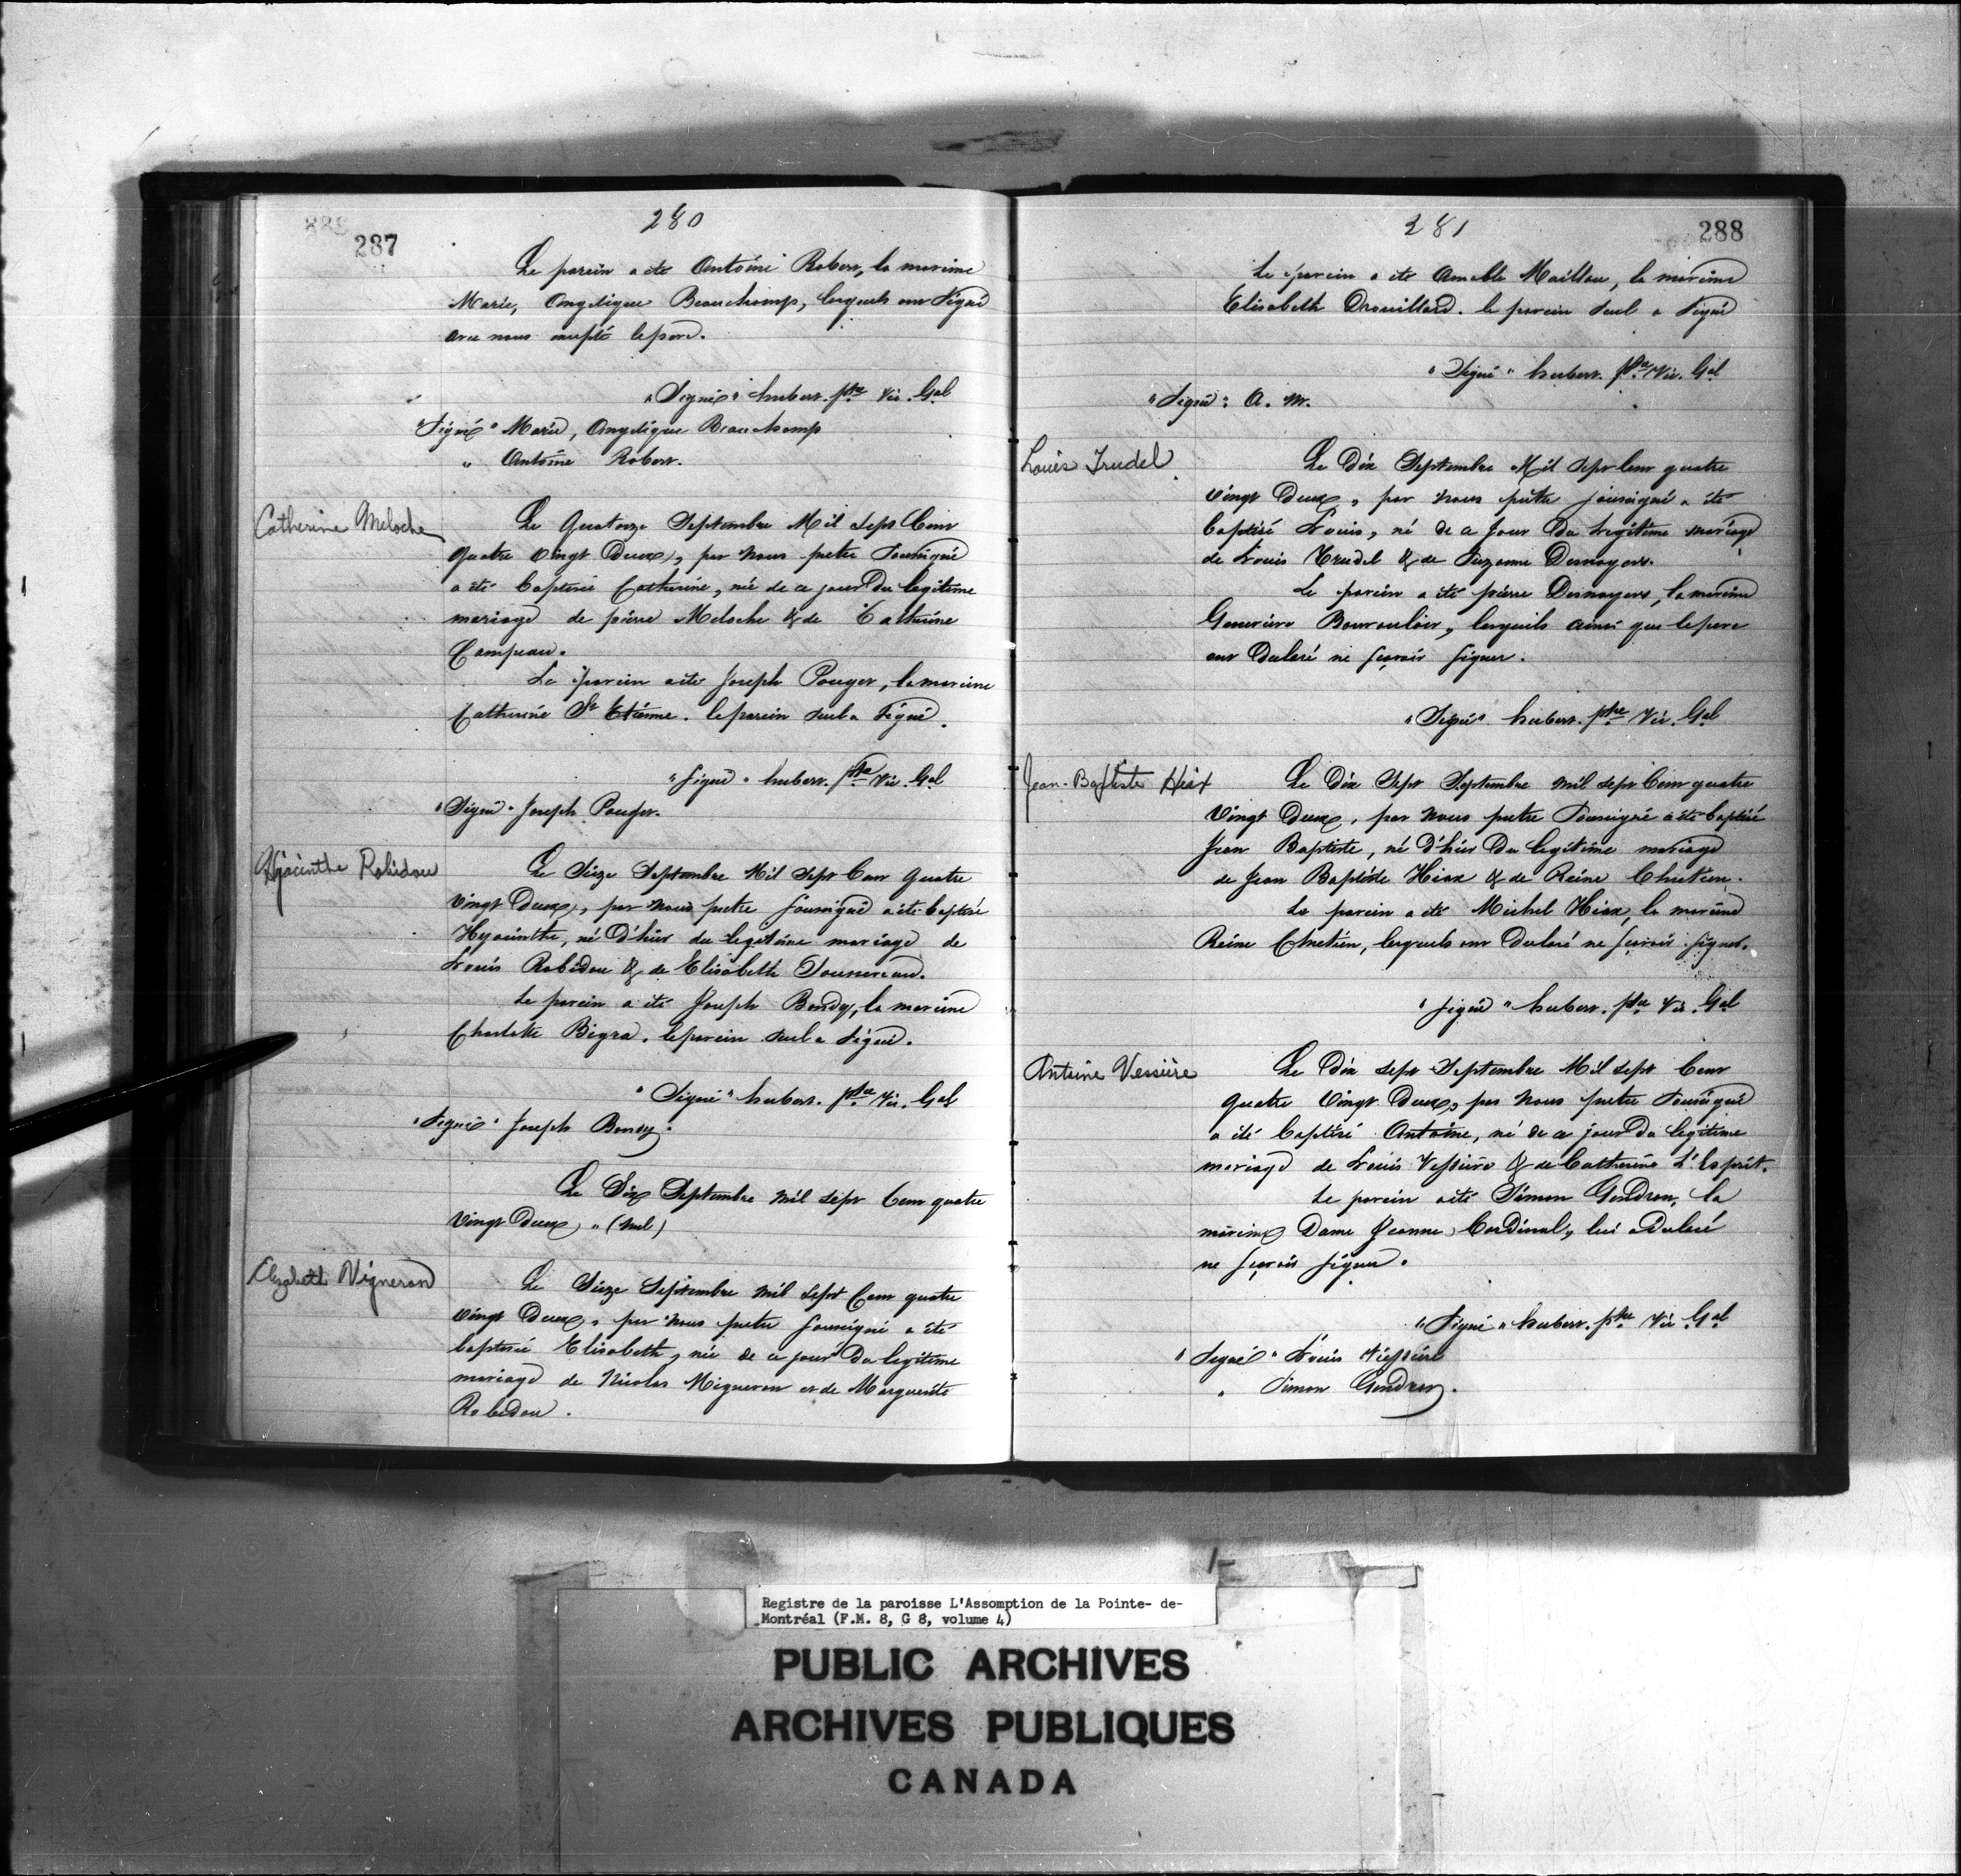 287
280
Le parein a été Antoine Robert, la mareine
Marie, Angelique Beauchamp, lesquels ont Signé
avec nous excepté le pere.
"Signé" hubert. ptre Vic. Gal
"Signé" Marie, Angelique Beauchamp
" Antoine Robert.
Catherine Meloche
Le Quatorze Septembre Mil Sept Cent
Quatre Vingt Deux, par Nous pretre Soussigné
a été Baptisée Catherine, née de ce jour Du legitime
mariage de pierre Meloche & de Catherine
Campeau.
Le parein a été Joseph Pouget, la mareine
Catherine St Etienne. le parein seul a Signé.
"Signé" hubert. ptre Vic. Gal
"Signé" Joseph Pouget.
Hyacinthe Robidou
Le Seize Septembre Mil Sept Cent Quatre
Vingt Deux, par Nous pretre soussigné a été baptisé
Hyacinthe, né D'hier du legitime mariage de
Louis Robidou & de Elisabeth Tournereau.
Le parein a été Joseph Bondy, la mareine
Charlotte Bigra. le parein seul a Signé.
"Signé" hubert. ptre Vic. Gal
"Signé" Joseph Bondy.
Le Dix Septembre mil sept Cent quatre
Vingt Deux, "(nul)
Elizabeth Vigneron
Le Seize Septembre mil sept Cent quatre
Vingt Deux, par Nous pretre soussigné a été
baptisée Elisabeth, née de ce jour Du legitime
mariage de Nicolas Migneron et de Marguerite
Robidou.
281
288
Le parein a été Amable Maillou, la mareine
Elisabeth Drouillard. le parein Seul a Signé
"Signé" hubert. ptre Vic. Gal
"Signé" A. M.
Louis Trudel
Le Dix Septembre Mil Sept Cent quatre
Vingt Deux, par Nous prêtre soussigné a été
baptisé Louis, né de ce Jour Du Legitime mariage
de Louis Trudel & de Suzanne Desnoyers.
Le parein a été pierre Desnoyers, la mareine
Geneviève Bourouloir, lesquels ainsi que le pere
ont Declaré ne sçavoir signer.
"Signé" hubert. ptre Vic. Gal
Jean-Baptiste Hiax
Le Dix Sept Septembre mil sept Cent quatre
Vingt Deux, par Nous pretre Soussigné a été baptisé
Jean Baptiste, né D'hier Du legitime mariage
de Jean Baptiste Hiax & de Reine Chretien.
Le parein a été Michel Hiax, la mareine
Reine Chretien, lesquels ont Declaré ne sçavoir signer.
"signé" hubert. ptre Vic. Gal
Antoine Vessière
Le Dix sept Septembre Mil sept Cent
Quatre Vingt Deux, par Nous pretre Soussigné
a été baptisé Antoine, né de ce jour Du legitime
mariage de Louis Vessiere & de Catherine L'Esprit.
Le parein a été Simon Gendron, la
mareine Dame Jeanne Cardinal, lui a Declaré
ne sçavoir signer.
"Signé" hubert. ptre Vic. Gal
"Signé" Louis Viessiere
" Simon Gendron.
Registre de la paroisse L'Assomption de la Pointe- de-
Montréal (F.M. 8, G 8, volume 4)
PUBLIC ARCHIVES
ARCHIVES PUBLIQUES
CANADA